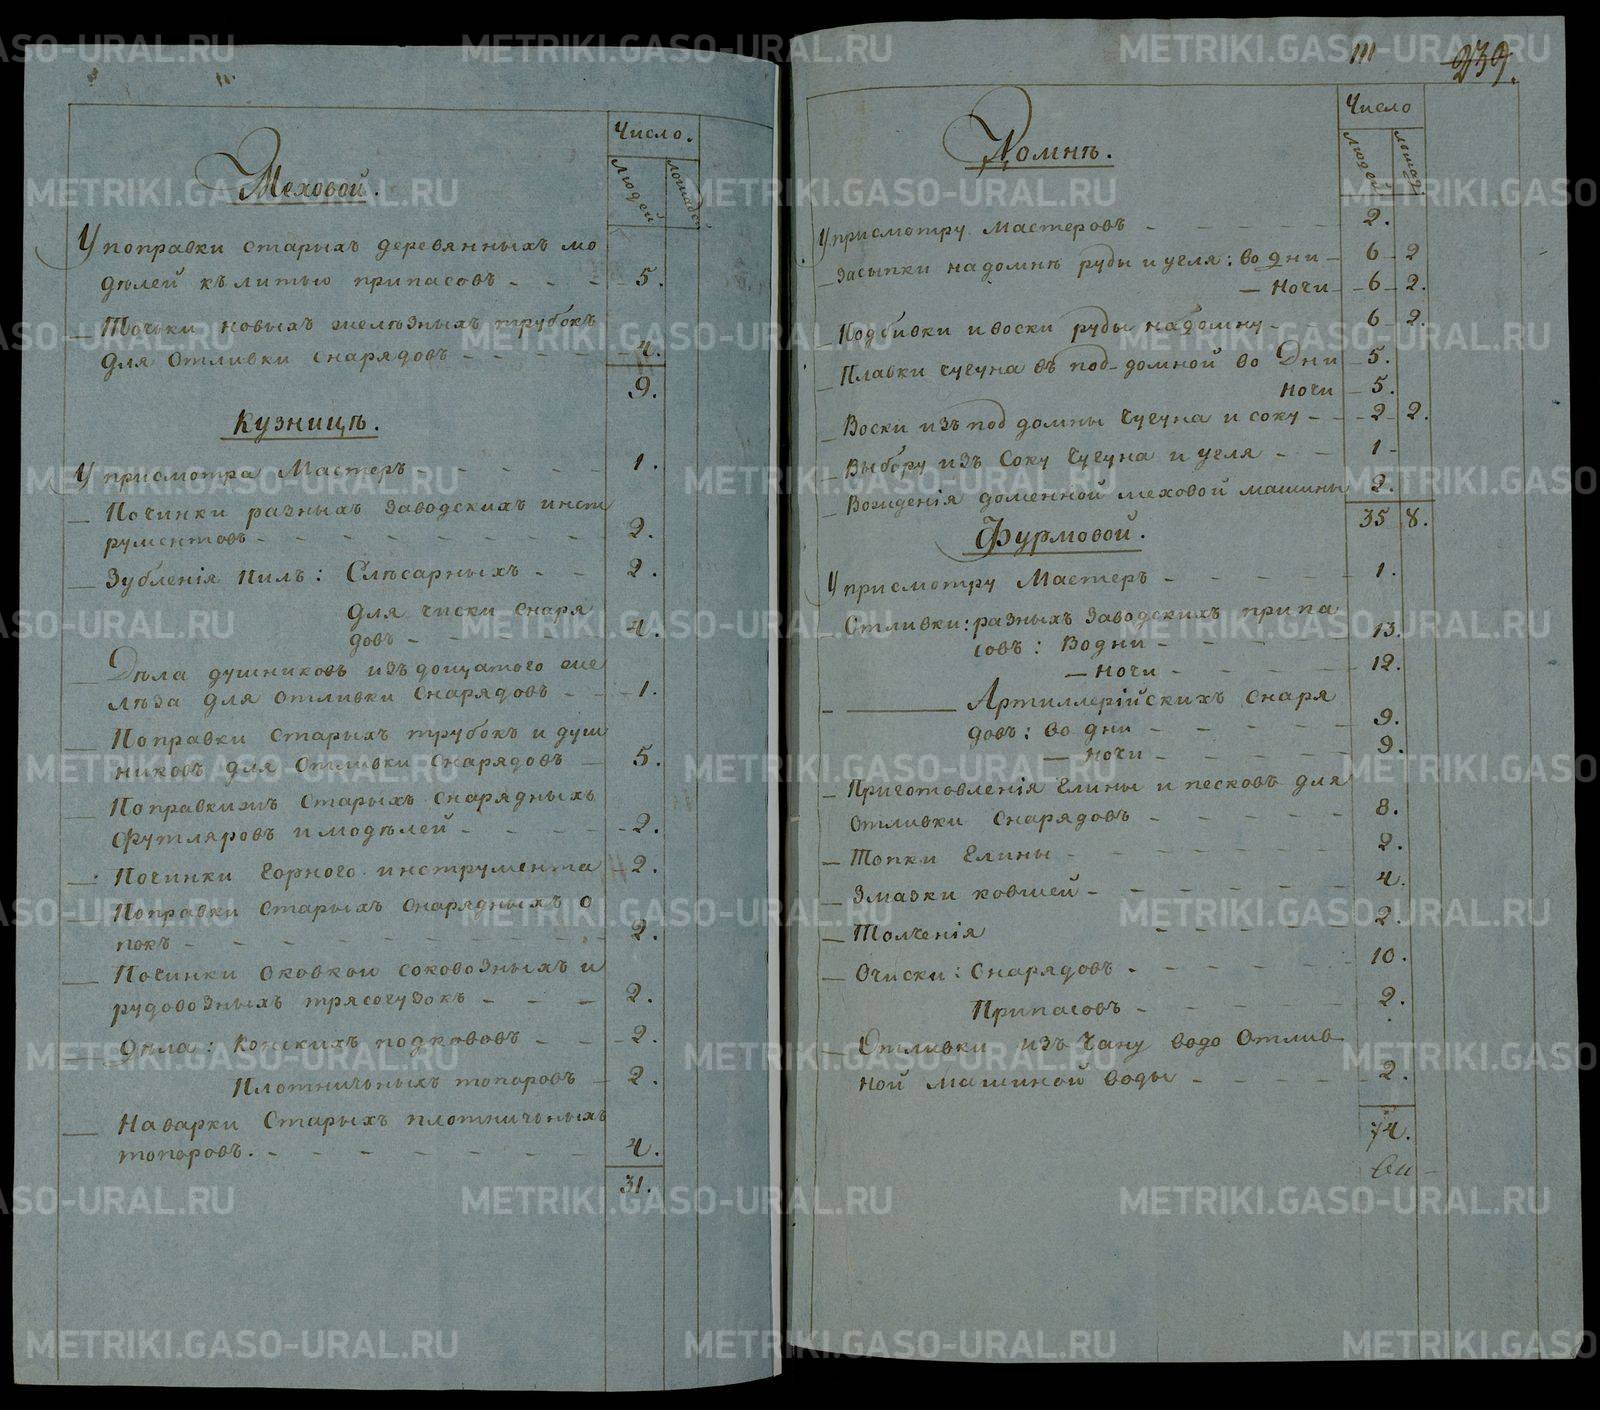 Число.
людей
лошадей
Меховой.
У поправки старыхъ деревянныхъ мо
дѣлей къ литью припасовъ - - - 5.
Точьки новыхъ желѣзныхъ трубокъ
для отливки снарядовъ - - - - 4.
9.
Кузницѣ.
У присмотра Мастеръ - - - - 1.
Починки разныхъ заводскихъ инст
рументовъ - - - - - - - 2.
Зубленія пилъ: Слѣсарныхъ - - 2.
для чиски снаря
довъ - - - - 4.
Дѣла душниковъ изъ дощатого же
лѣза для отливки снарядовъ - - 1.
Поправки старыхъ трубокъ и душ
никовъ для отливки снарядовъ - 5.
Поправки старыхъ снарядныхъ
футляровъ и модѣлей - - - - 2.
Починки горного инструмента 2.
Поправки старыхъ снарядныхъ о
покъ - - - - - - - - 2.
Починки оковкои соковозныхъ и
рудовозныхъ трясогузокъ - - - 2.
Дѣла: Конскихъ подкововъ - - 2.
Плотничьныхъ топоровъ - 2.
Наварки старыхъ плотничьныхъ
топоровъ. - - - - - - - 4.
31.
111 239.
Число
людей
лошад.
Домнѣ.
У присмотру Мастеровъ - - - - - 2.
Засыпки на домнѣ руды и угля: во дни - 6 - 2
— Ночи - 6 - 2.
Подбивки и воски руды на домну - - 6 - 2.
Плавки чугуна въ под-домной во Дни - 5.
Ночи - 5.
Воски изъ под домны чугуна и соку - - 2 - 2.
Выбору изъ соку чугуна и угля - - 1 -
Вожденія доменной меховой машины 2.
35 8.
Фурмовой.
У присмотру Мастеръ - - - - - 1.
Отливки: разныхъ заводскихъ припа
совъ: Во дни - - - - 13.
— Ночи - - - - 12.
Артиллерійскихъ снаря
довъ: во дни - - - - 9.
— Ночи - - - - 9.
Приготовленія глины и песковъ для
отливки снарядовъ - - - - - 8.
Топки глины - - - - - - 2.
Змазки ковшей - - - - - - 4.
Толченія - - - - 2.
Очиски: Снарядовъ - - - - - 10.
Припасовъ - - - - - 2.
Отливки изъ чану водо отлив-
ной машиной воды - - - - 2.
74.